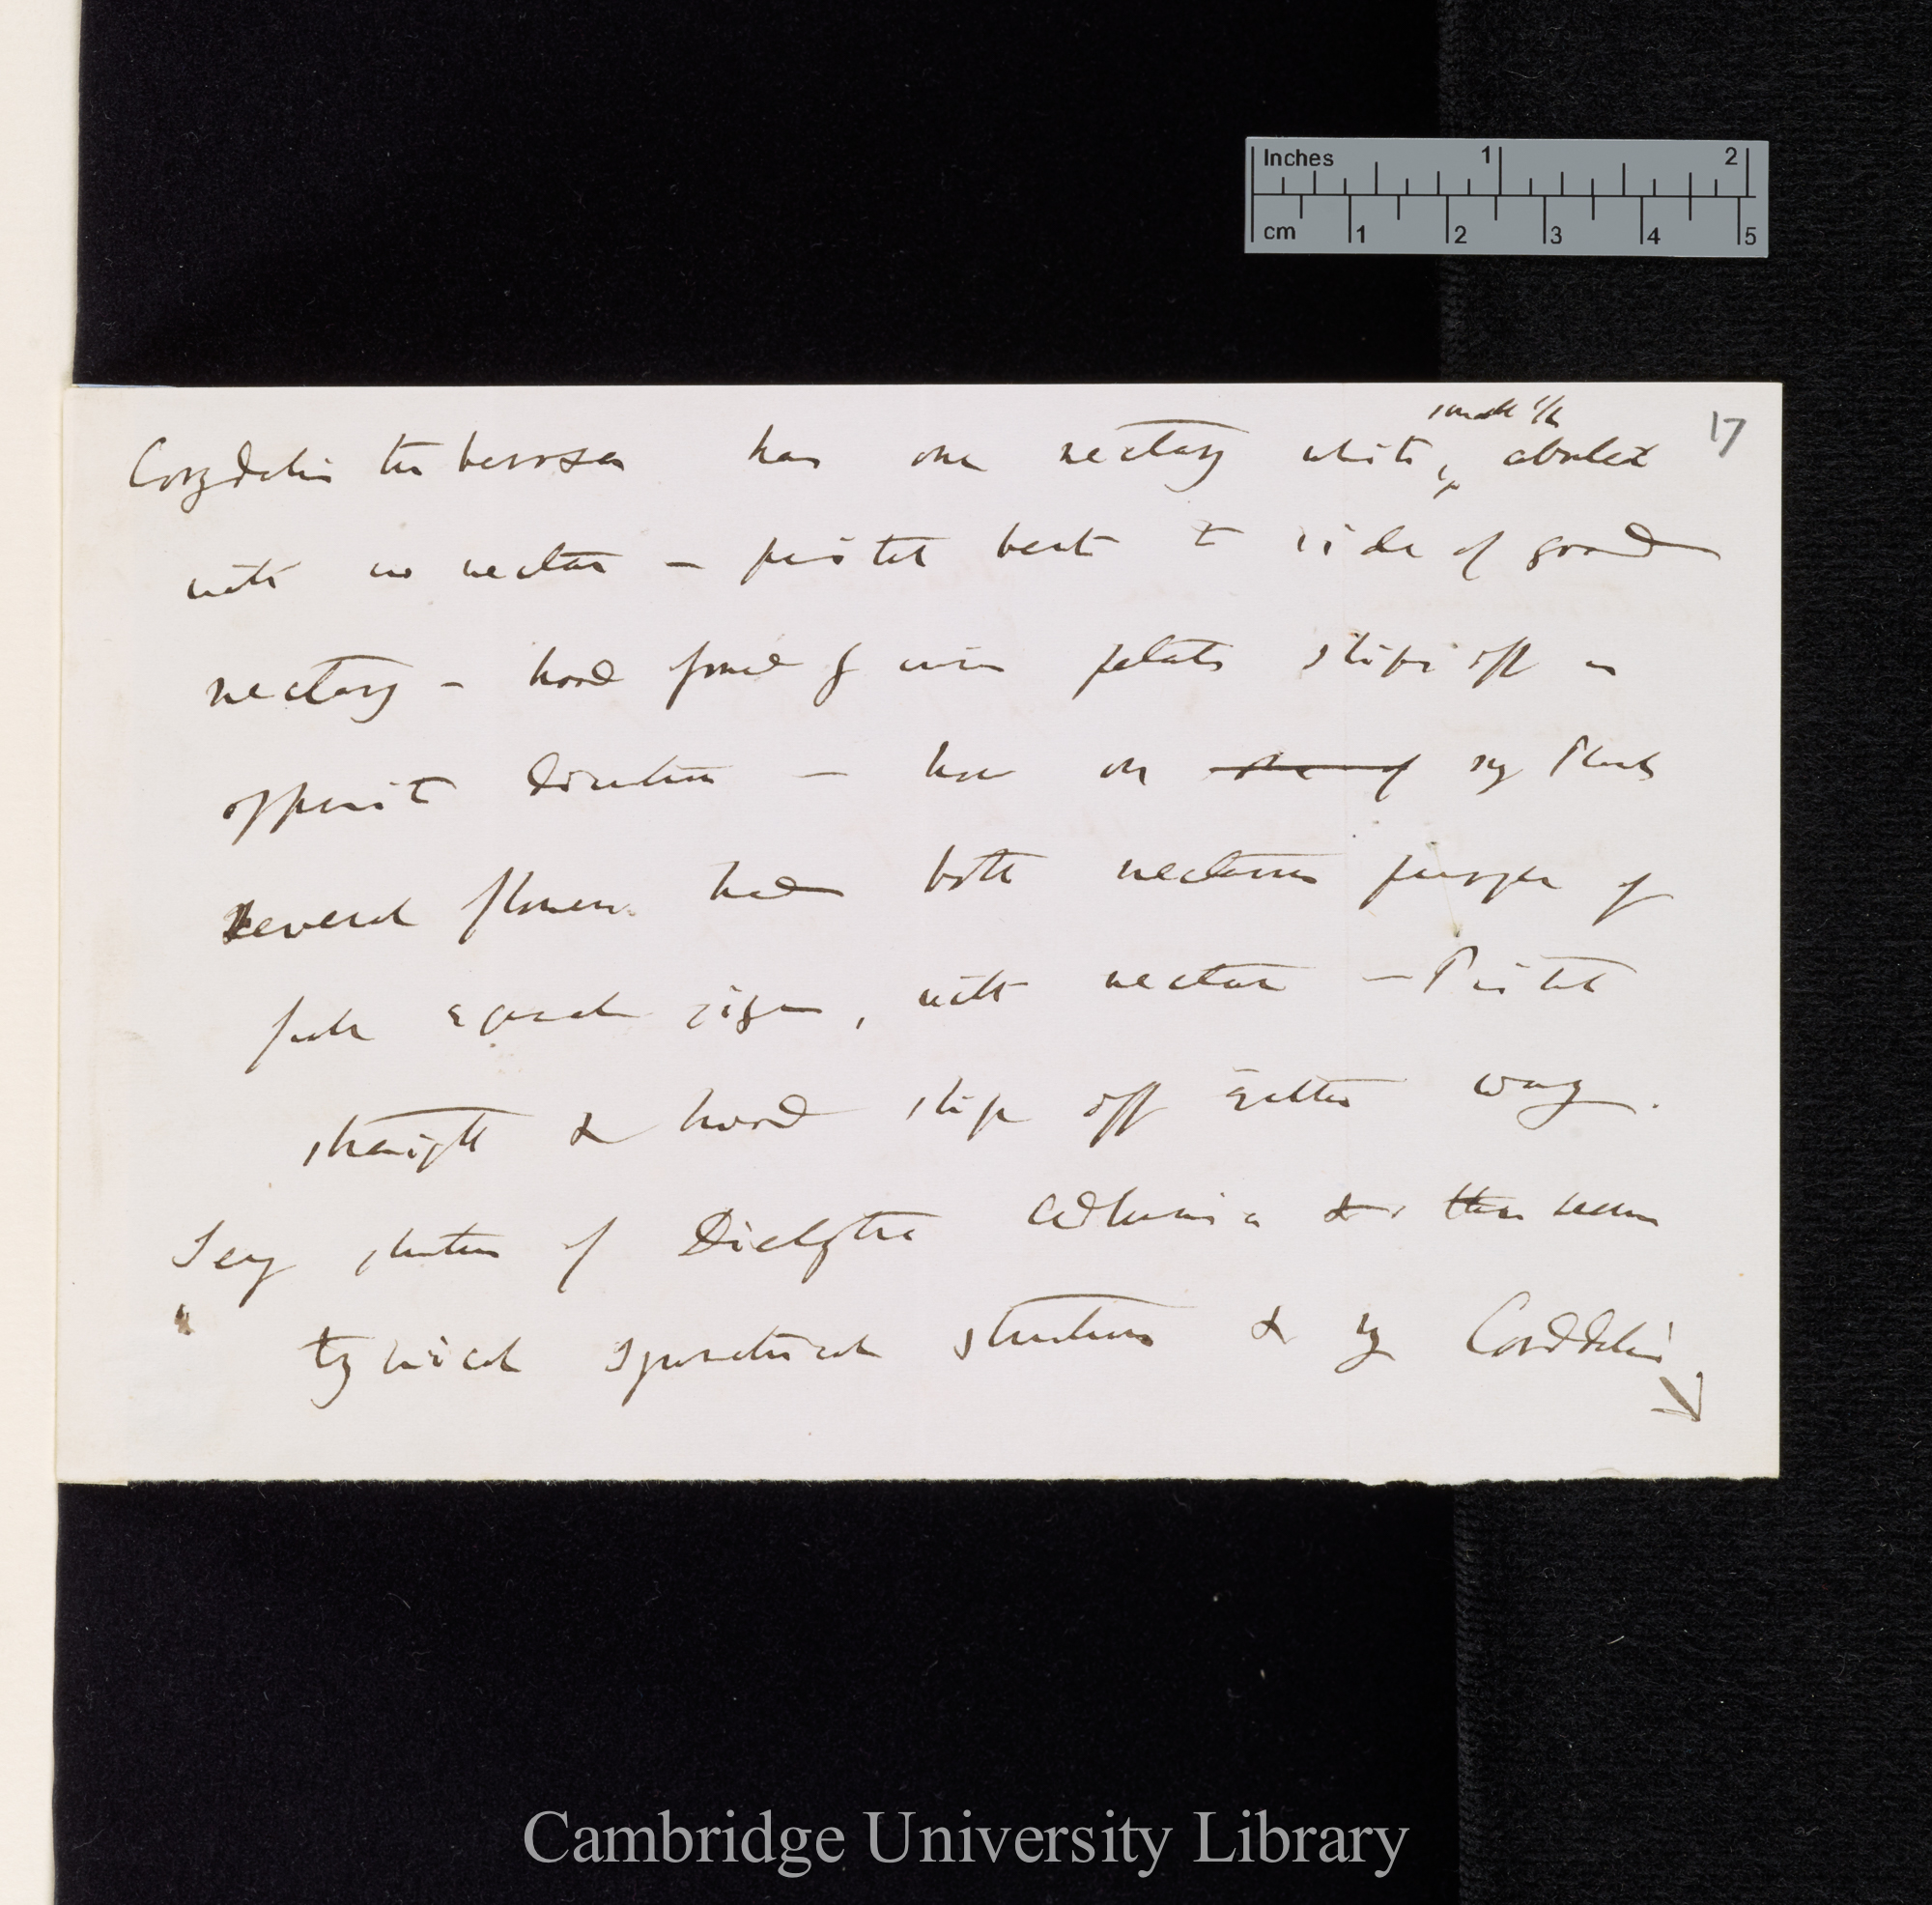 Inches 1 2
cm 1 2 3 4 5
17
small
Corydalis tuberosa has one nectary white, aborted
with no nectar — pistil bent to side of good
nectary — hood formed of inner petals slips off in
opposite direction — now on one of my Plants
several flowers had both nectaries purple of
full equal size, with nectar — Pistil
straight & hood slips off either way.
Say structure of Dielytra Adlumia & then
typical symmetrical structure & my Corydalis
Cambridge University Library